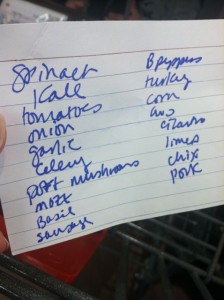 Spinach
Kale
tomatoes
onion
garlic
Celery
port mushrooms
mozz
Basil
sausage
B peppers
turkey
corn
avo
cilantro
limes
chix
pork